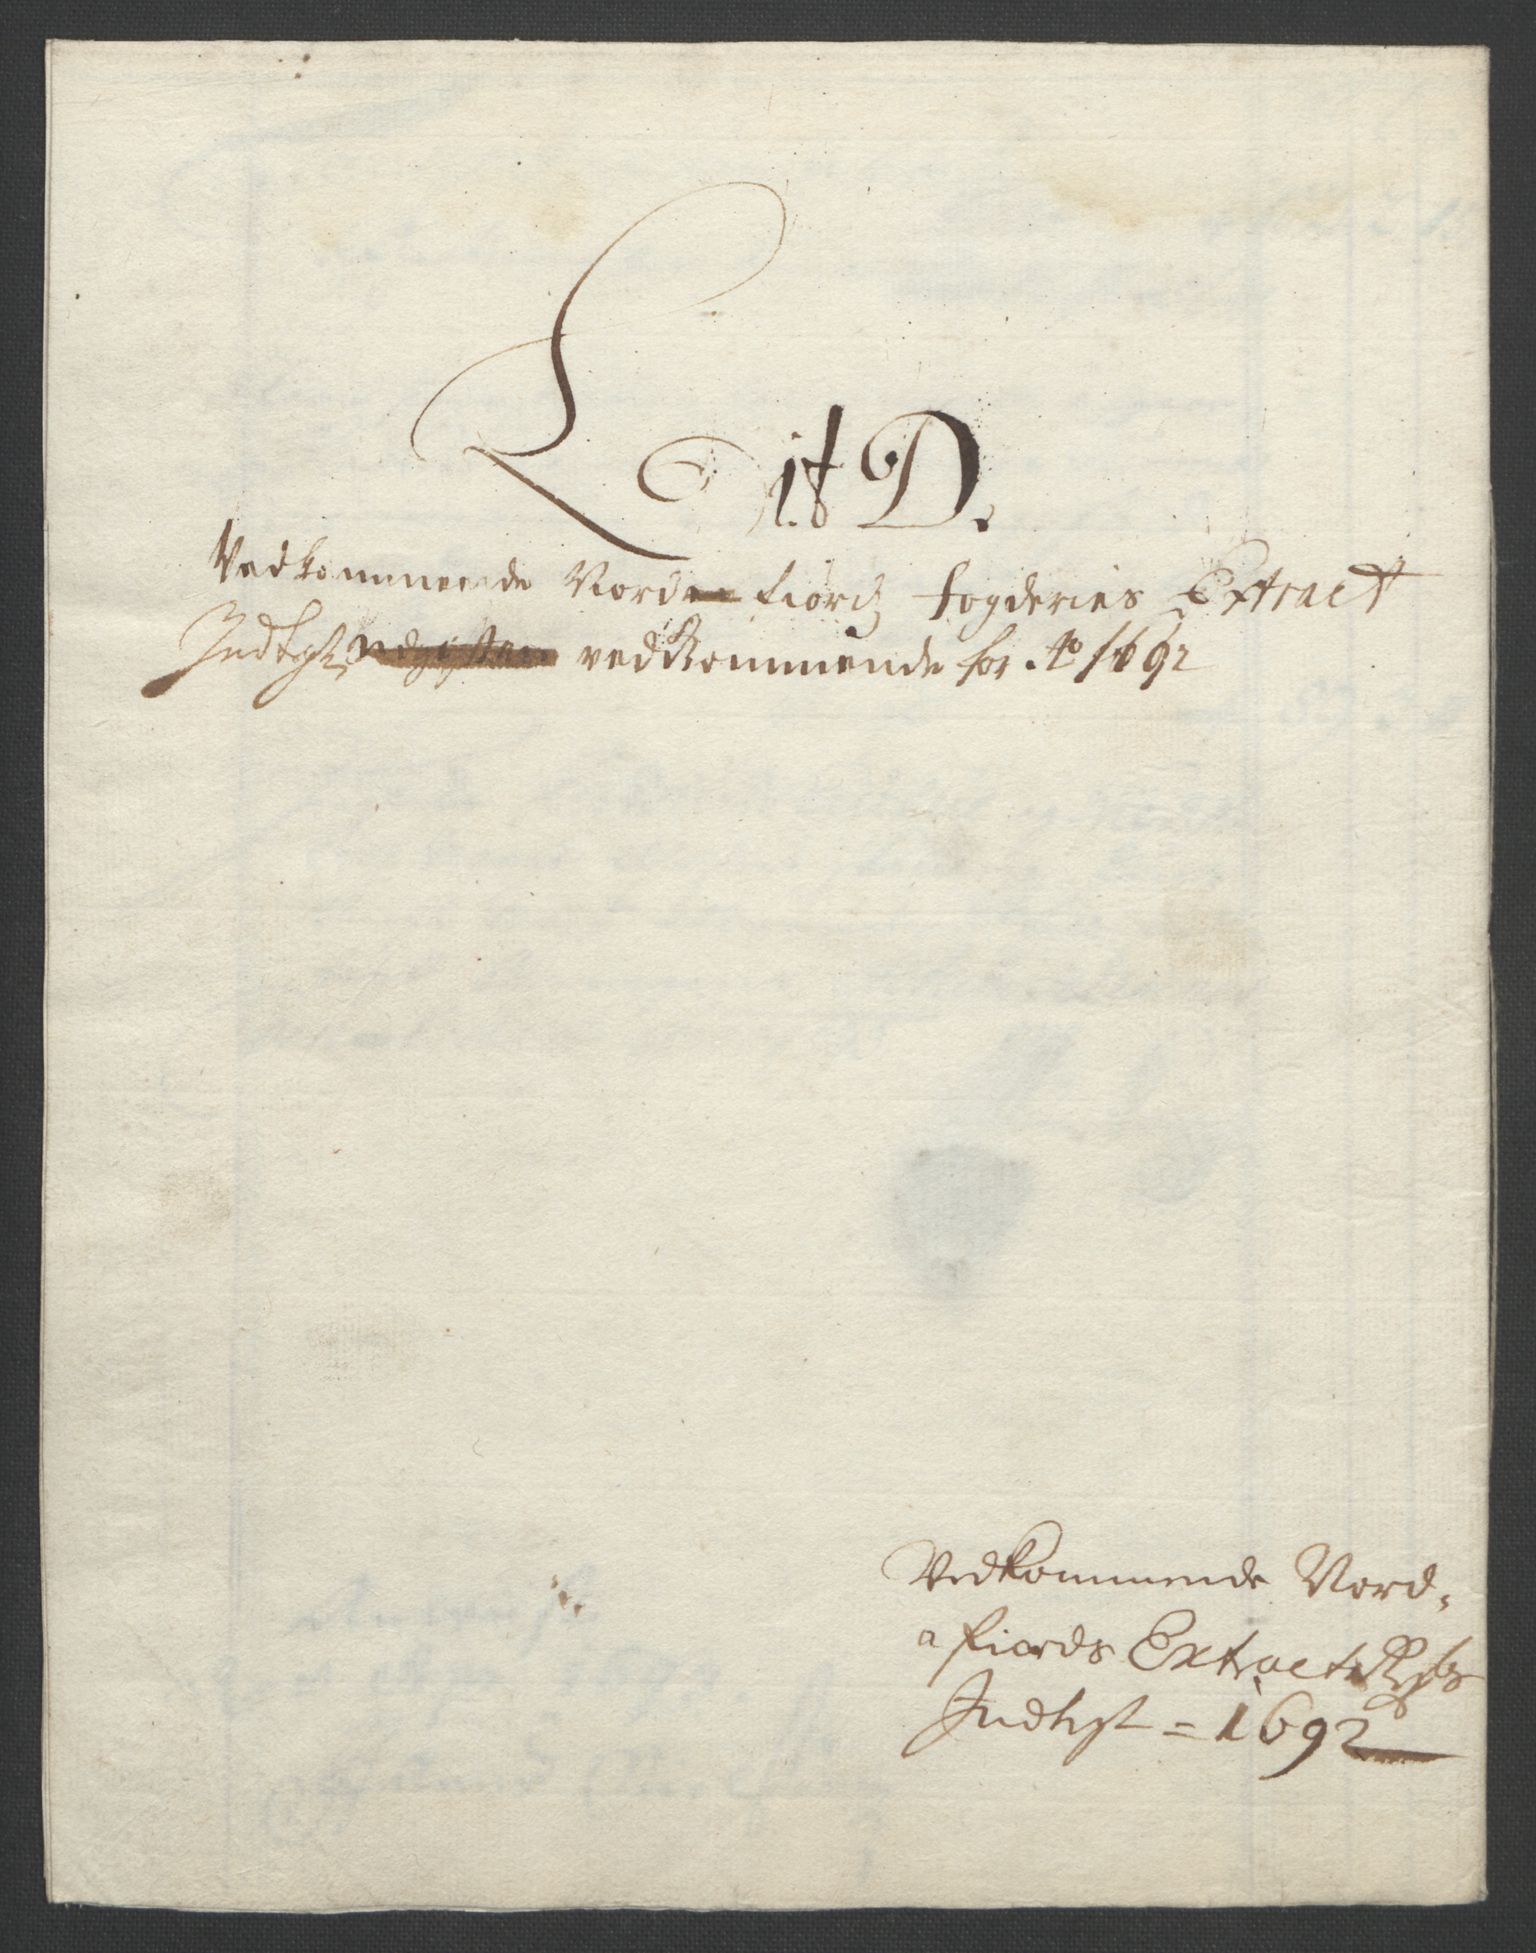 Lit D.
Vedkommende Nord fiordz fogderies Extract
Indtegt vedkommende for Ao 1692
Vedkommende Nord-
fiords Extract
Indtegt = 1692